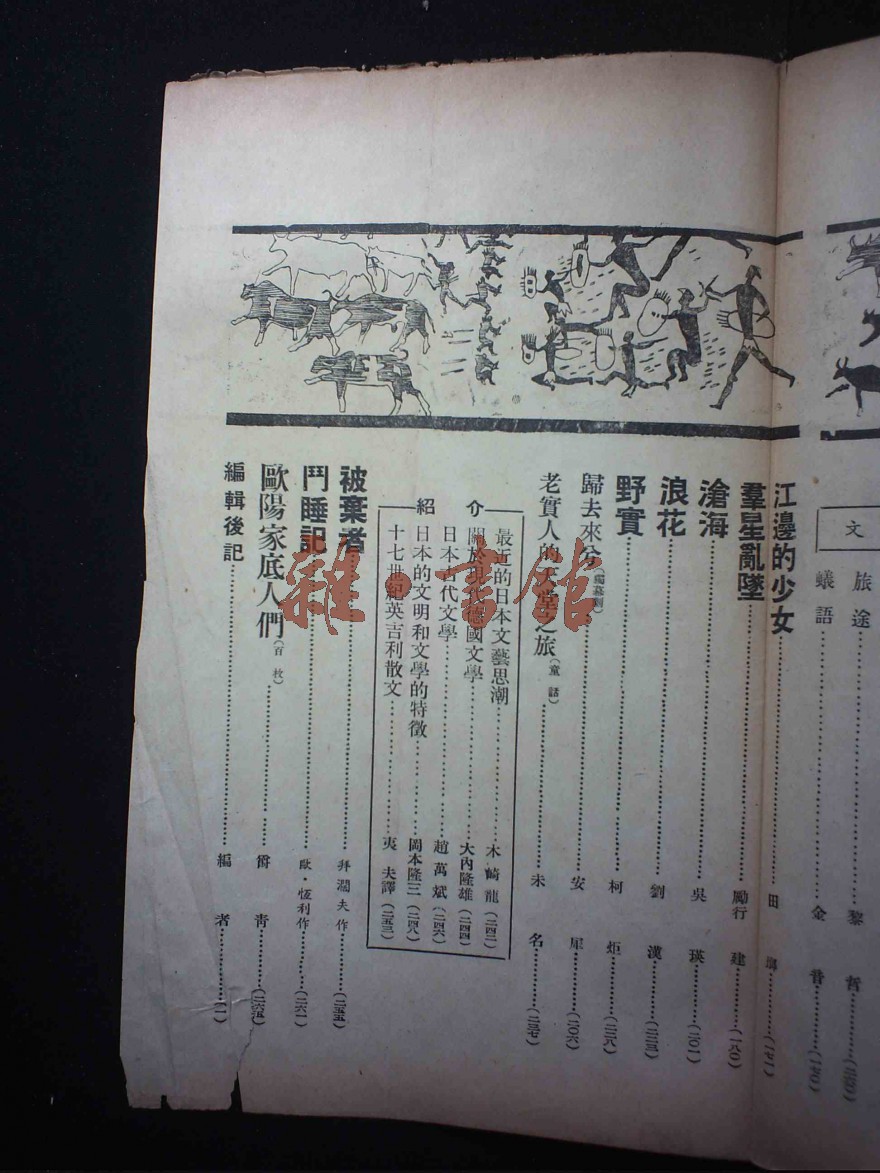 文
旅途……黎哲
蟻語……金音(一七〇)
江邊的少女……田瑯(一七一)
羣星亂墜……勵行建(一八〇)
滄海……吳瑛(二〇一)
浪花……劉漢(二二三)
野實……柯炬(二二八)
歸去來兮(獨幕劇)……安犀(二〇六)
老實人的天堂之旅(童話)……未名(二三七)
介紹
最近的日本文藝思潮……木崎龍(二四二)
關於現代德國文學……大內隆雄(二四四)
日本古代文學……趙萬斌(二四六)
日本的文明和文學的特徵……岡本隆三(二四八)
十七世紀英吉利散文……夷夫譯(二五三)
被棄者……拜濶夫作(二五五)
鬥睡記……歐・恆利作(二六一)
歐陽家底人們(百枚)……爵青(二六五)
編輯後記……編者(一)
雜・書館